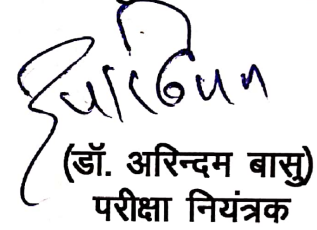 (डॉ. अरिन्दम बासु)
परीक्षा नियंत्रक